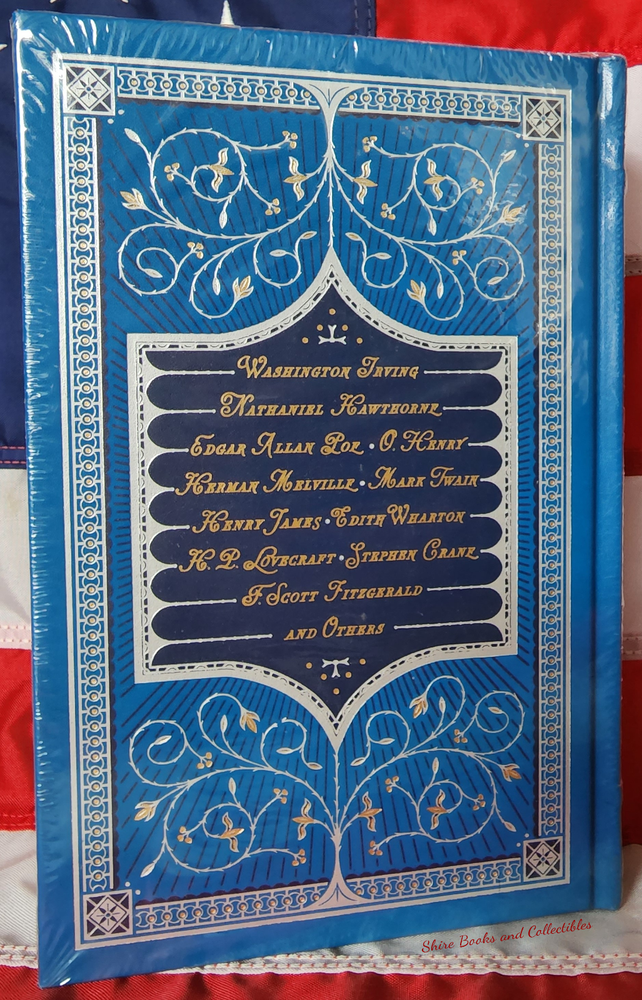 Washington Irving
Nathaniel Hawthorne
Edgar Allan Poe • O. Henry
Herman Melville • Mark Twain
Henry James • Edith Wharton
H. P. Lovecraft • Stephen Crane
F. Scott Fitzgerald
and Others
Shire Books and Collectibles